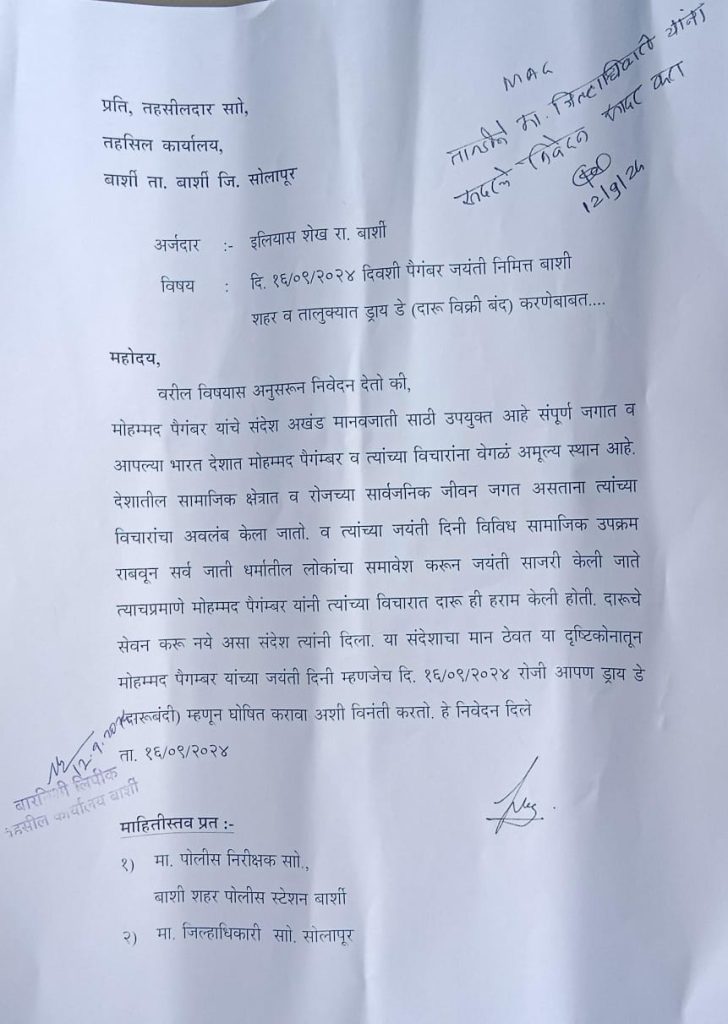 MAG
मा. जिल्हाधिकारी यांना
निवेदन सादर करा
12/9/24
प्रति, तहसीलदार साो,
तहसिल कार्यालय,
बार्शी ता. बार्शी जि. सोलापूर
अर्जदार :- इलियास शेख रा. बार्शी
विषय : दि. १६/०९/२०२४ दिवशी पैगंबर जयंती निमित्त बाशी
शहर व तालुक्यात ड्राय डे (दारू विक्री बंद) करणेबाबत....
महोदय,
वरील विषयास अनुसरून निवेदन देतो की,
मोहम्मद पैगंबर यांचे संदेश अखंड मानवजाती साठी उपयुक्त आहे संपूर्ण जगात व
आपल्या भारत देशात मोहम्मद पैगंम्बर व त्यांच्या विचारांना वेगळं अमूल्य स्थान आहे.
देशातील सामाजिक क्षेत्रात व रोजच्या सार्वजनिक जीवन जगत असताना त्यांच्या
विचारांचा अवलंब केला जातो. व त्यांच्या जयंती दिनी विविध सामाजिक उपक्रम
राबवून सर्व जाती धर्मातील लोकांचा समावेश करून जयंती साजरी केली जाते
त्याचप्रमाणे मोहम्मद पैगंम्बर यांनी त्यांच्या विचारात दारू ही हराम केली होती. दारूचे
सेवन करू नये असा संदेश त्यांनी दिला. या संदेशाचा मान ठेवत या दृष्टिकोनातून
मोहम्मद पैगम्बर यांच्या जयंती दिनी म्हणजेच दि. १६/०९/२०२४ रोजी आपण ड्राय डे
(दारूबंदी) म्हणून घोषित करावा अशी विनंती करतो. हे निवेदन दिले
ता. १६/०९/२०२४
बारनिशी लिपीक
तहसील कार्यालय बार्शी
माहितीस्तव प्रत :-
१) मा. पोलीस निरीक्षक साो.,
बाशी शहर पोलीस स्टेशन बार्शी
२) मा. जिल्हाधिकारी साो. सोलापूर